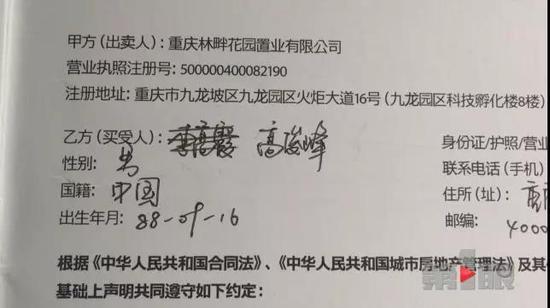 甲方（出卖人）：重庆林畔花园置业有限公司
营业执照注册号：500000400082190
注册地址：重庆市九龙坡区九龙园区火炬大道16号（九龙园区科技孵化楼8楼）
乙方（买受人）： 高俊峰 身份证/护照/营业
性别：男 联系电话（手机）
国籍：中国 住所（址）：
出生年月：88-09-16 邮编：4000
根据《中华人民共和国合同法》、《中华人民共和国城市房地产管理法》及其
基础上声明共同遵守如下约定：
第1眼